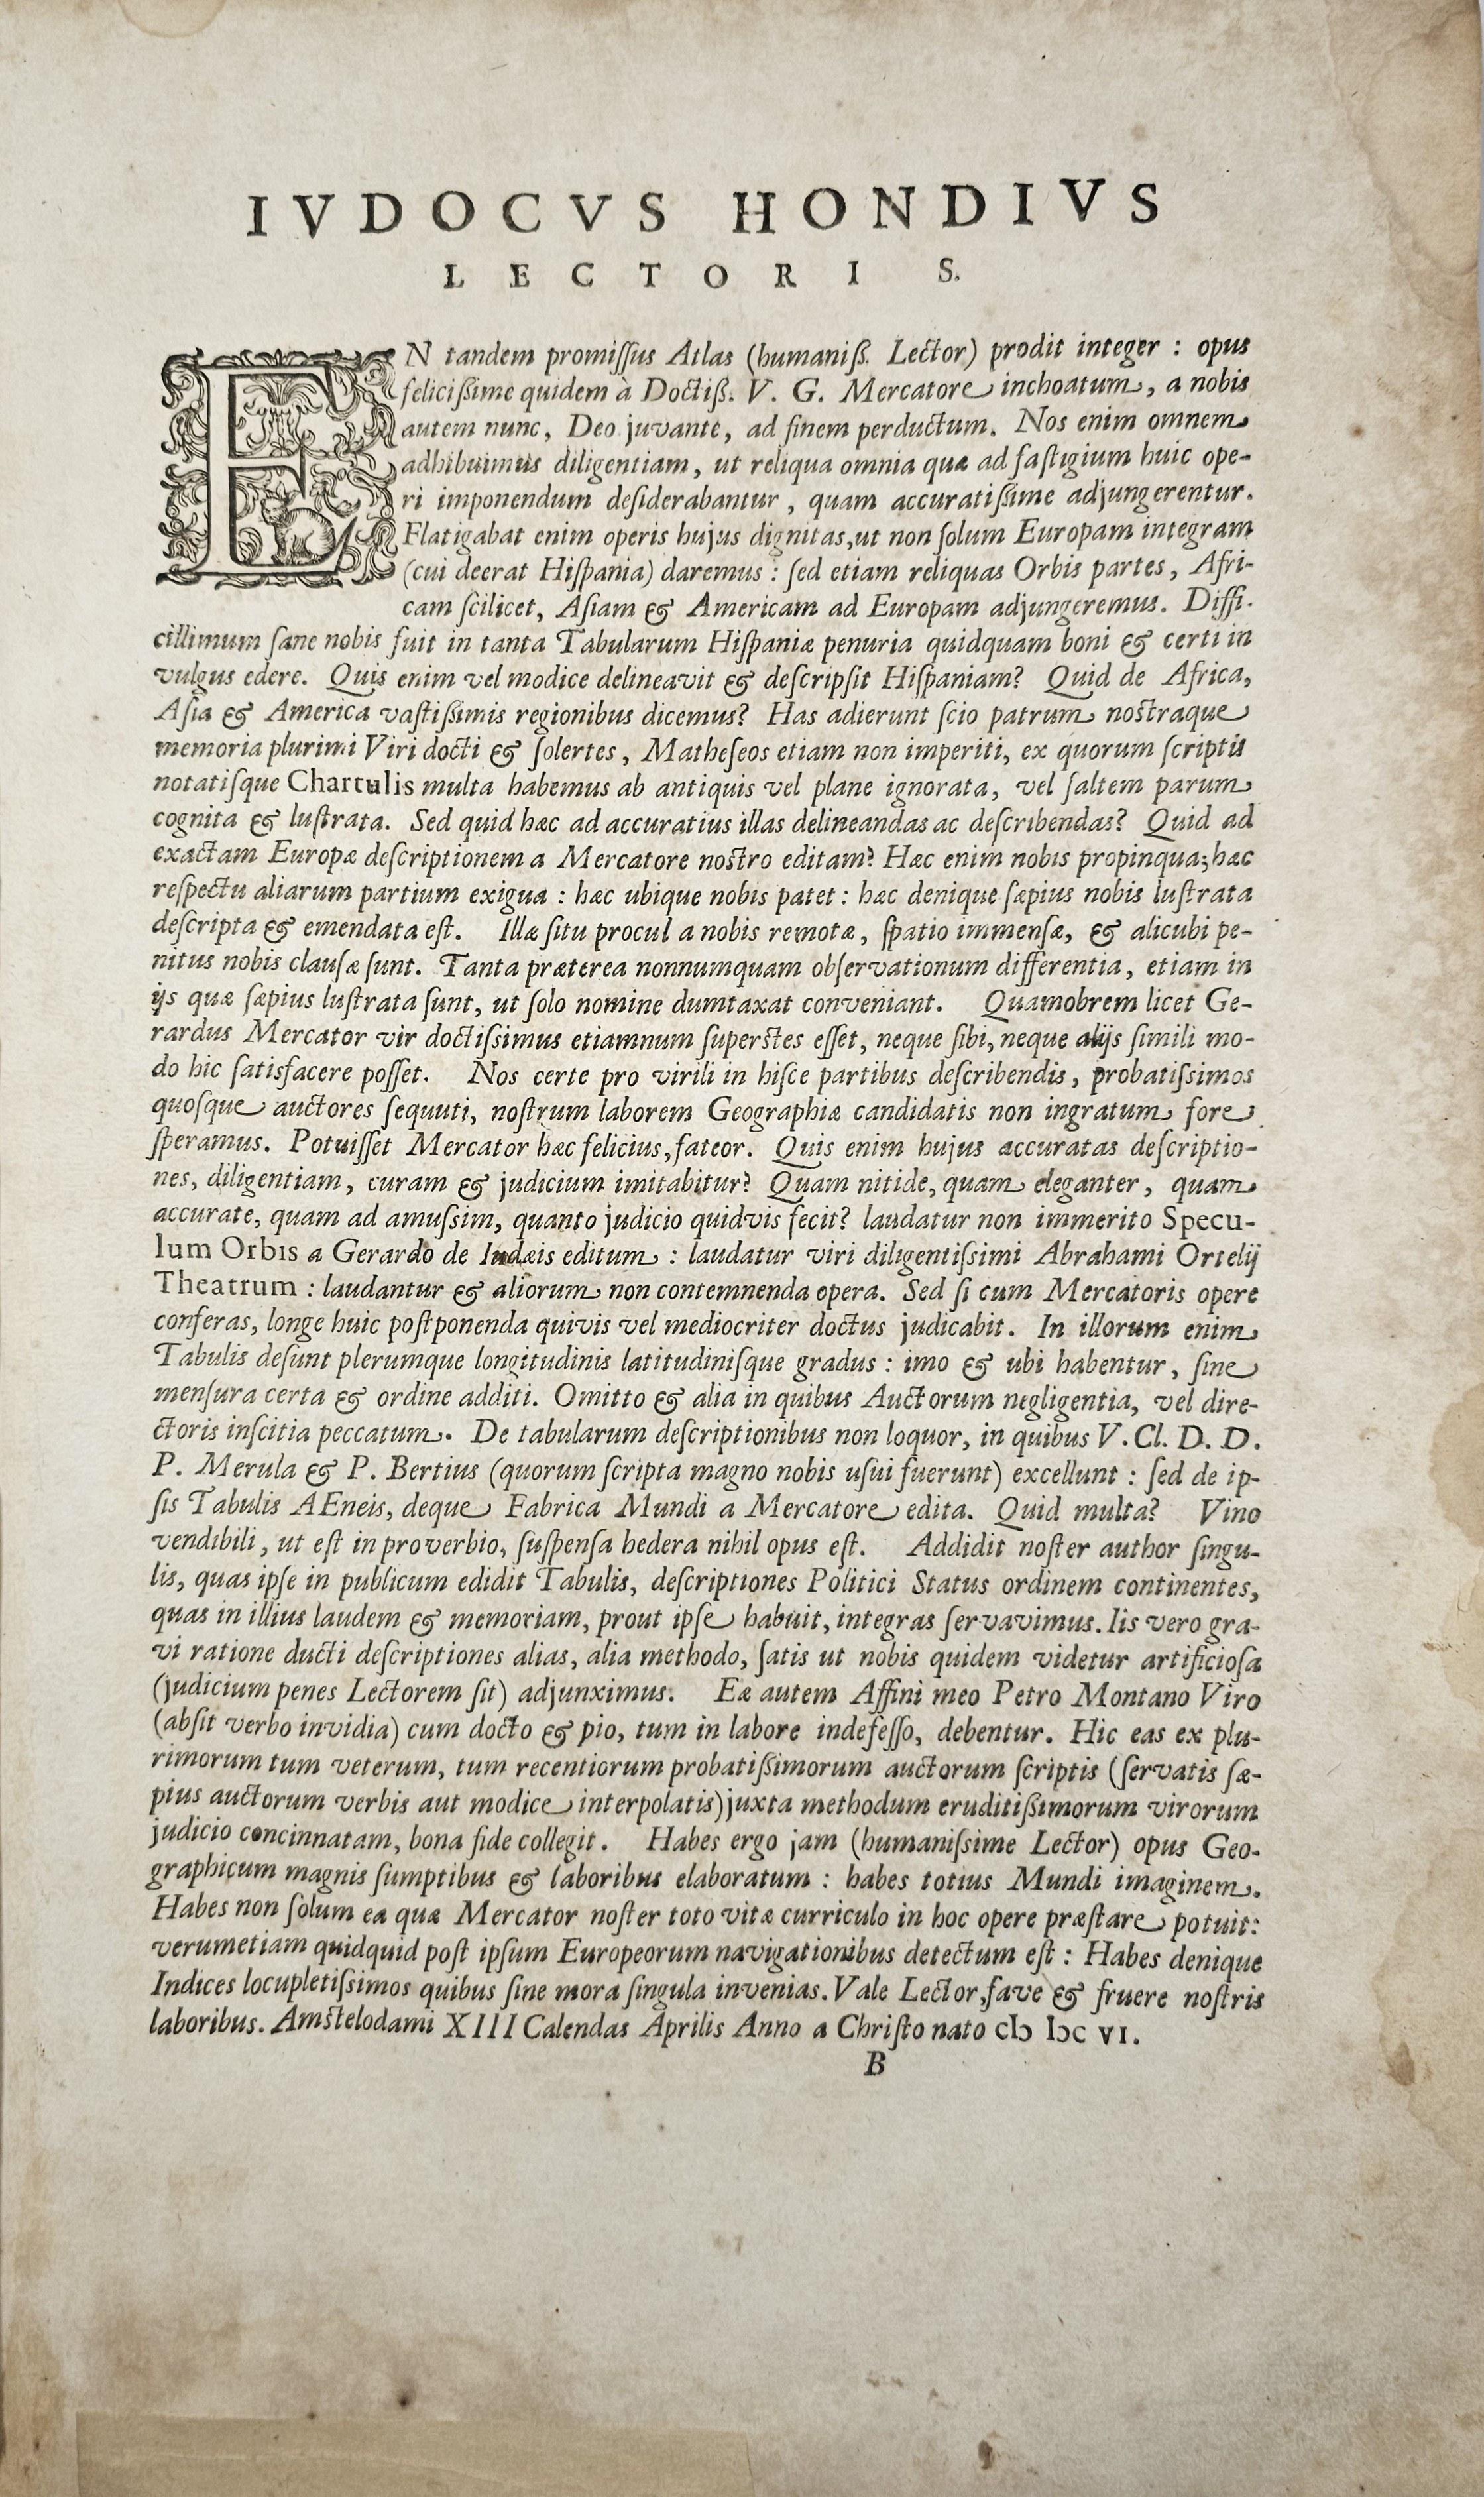 IVDOCVS HONDIVS
LECTORI S.
EN tandem promiſſus Atlas (humaniß. Lector) prodit integer : opus
feliciſſime quidem à Doctiß. V. G. Mercatore inchoatum, a nobis
autem nunc, Deo juvante, ad finem perductum. Nos enim omnem
adhibuimus diligentiam, ut reliqua omnia quæ ad faſtigium huic ope-
ri imponendum deſiderabantur, quam accuratiſſime adjungerentur.
Flatigabat enim operis hujus dignitas, ut non ſolum Europam integram
(cui deerat Hiſpania) daremus : ſed etiam reliquas Orbis partes, Afri-
cam ſcilicet, Aſiam & Americam ad Europam adjungeremus. Diffi-
cillimum ſane nobis fuit in tanta Tabularum Hiſpaniæ penuria quidquam boni & certi in
vulgus edere. Quis enim vel modice delineavit & deſcripſit Hiſpaniam? Quid de Africa,
Aſia & America vaſtiſſimis regionibus dicemus? Has adierunt ſcio patrum noſtraque
memoria plurimi Viri docti & ſolertes, Matheſeos etiam non imperiti, ex quorum ſcriptis
notatiſque Chartulis multa habemus ab antiquis vel plane ignorata, vel ſaltem parum
cognita & luſtrata. Sed quid hæc ad accuratius illas delineandas ac deſcribendas? Quid ad
exactam Europæ deſcriptionem a Mercatore noſtro editam? Hæc enim nobis propinqua; hæc
reſpectu aliarum partium exigua : hæc ubique nobis patet : hæc denique ſæpius nobis luſtrata
deſcripta & emendata eſt. Illæ ſitu procul a nobis remotæ, ſpatio immenſæ, & alicubi pe-
nitus nobis clauſæ ſunt. Tanta præterea nonnumquam obſervationum differentia, etiam in
ijs quæ ſæpius luſtrata ſunt, ut ſolo nomine dumtaxat conveniant. Quamobrem licet Ge-
rardus Mercator vir doctiſſimus etiamnum ſuperſtes eſſet, neque ſibi, neque alijs ſimili mo-
do hic ſatisfacere poſſet. Nos certe pro virili in hiſce partibus deſcribendis, probatiſſimos
quoſque auctores ſequuti, noſtrum laborem Geographiæ candidatis non ingratum fore
ſperamus. Potuiſſet Mercator hæc felicius, fateor. Quis enim hujus accuratas deſcriptio-
nes, diligentiam, curam & judicium imitabitur? Quam nitide, quam eleganter, quam
accurate, quam ad amuſſim, quanto judicio quidvis fecit? laudatur non immerito Specu-
lum Orbis a Gerardo de Iudæis editum : laudatur viri diligentiſſimi Abrahami Ortelij
Theatrum : laudantur & aliorum non contemnenda opera. Sed ſi cum Mercatoris opere
conferas, longe huic poſtponenda quivis vel mediocriter doctus judicabit. In illorum enim
Tabulis deſunt plerumque longitudinis latitudiniſque gradus : imo & ubi habentur, ſine
menſura certa & ordine additi. Omitto & alia in quibus Auctorum negligentia, vel dire-
ctoris inſcitia peccatum. De tabularum deſcriptionibus non loquor, in quibus V. Cl. D. D.
P. Merula & P. Bertius (quorum ſcripta magno nobis uſui fuerunt) excellunt : ſed de ip-
ſis Tabulis AEneis, deque Fabrica Mundi a Mercatore edita. Quid multa? Vino
vendibili, ut eſt in proverbio, ſuſpenſa hedera nihil opus eſt. Addidit noſter author ſingu-
lis, quas ipſe in publicum edidit Tabulis, deſcriptiones Politici Status ordinem continentes,
quas in illius laudem & memoriam, prout ipſe habuit, integras ſervavimus. Iis vero gra-
vi ratione ducti deſcriptiones alias, alia methodo, ſatis ut nobis quidem videtur artificioſa
(judicium penes Lectorem ſit) adjunximus. Eæ autem Affini meo Petro Montano Viro
(abſit verbo invidia) cum docto & pio, tum in labore indefeſſo, debentur. Hic eas ex plu-
rimorum tum veterum, tum recentiorum probatißimorum auctorum ſcriptis (ſervatis ſæ-
pius auctorum verbis aut modice interpolatis) juxta methodum eruditißimorum virorum
judicio concinnatam, bona fide collegit. Habes ergo jam (humaniſſime Lector) opus Geo-
graphicum magnis ſumptibus & laboribus elaboratum : habes totius Mundi imaginem.
Habes non ſolum ea quæ Mercator noſter toto vitæ curriculo in hoc opere præſtare potuit:
verumetiam quidquid poſt ipſum Europeorum navigationibus detectum eſt : Habes denique
Indices locupletiſſimos quibus ſine mora ſingula invenias. Vale Lector, fave & fruere noſtris
laboribus. Amſtelodami XIII Calendas Aprilis Anno a Chriſto nato cIↄ Iↄc VI.
B